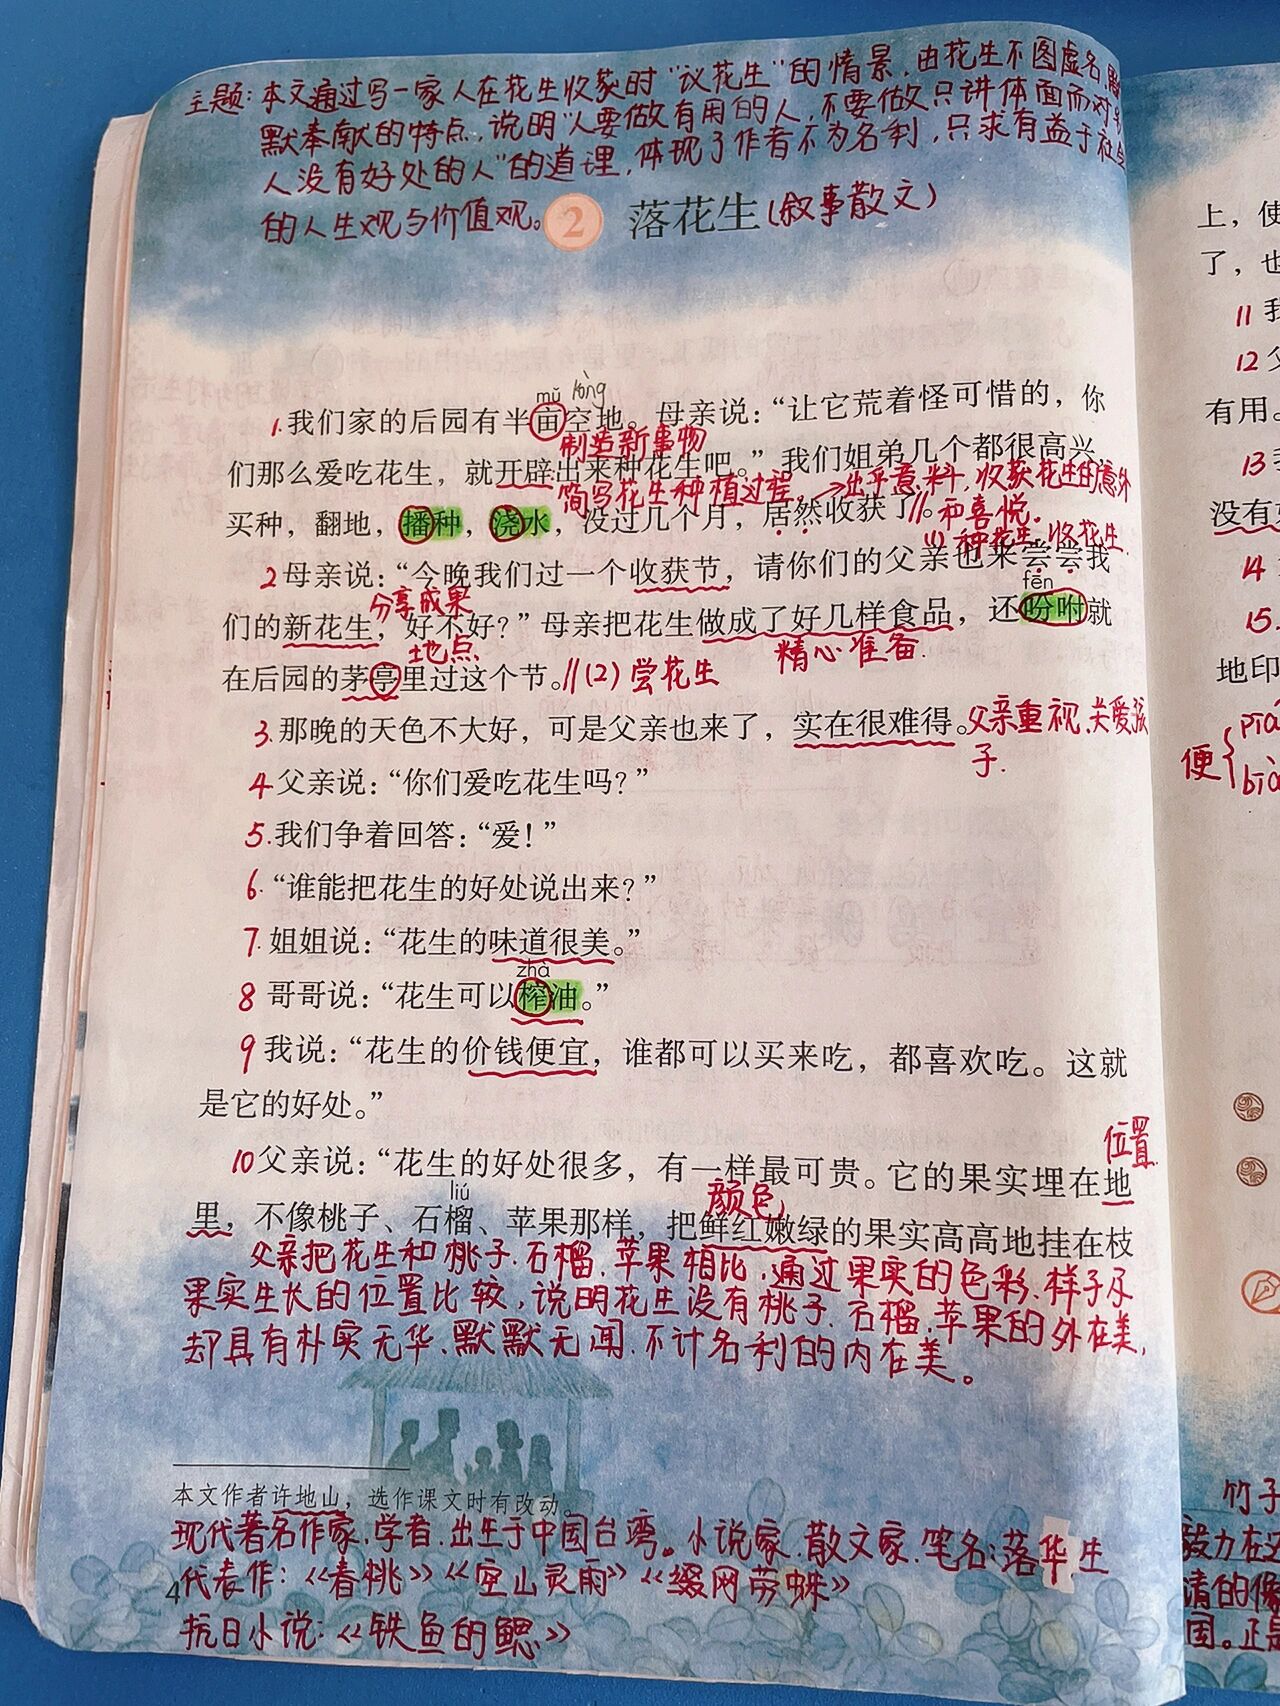 主题:本文通过写一家人在花生收获时“议花生”的情景,由花生不图虚名,
默奉献的特点,说明“人要做有用的人,不要做只讲体面而对
人没有好处的人”的道理,体现了作者不为名利,只求有益于社会
的人生观与价值观。
2 落花生(叙事散文)
mǔ kòng
1.我们家的后园有半亩空地。母亲说:“让它荒着怪可惜的,你
制造新事物
们那么爱吃花生,就开辟出来种花生吧。”我们姐弟几个都很高兴,
简写花生种植过程,→出乎意料,收获花生的意外
买种,翻地,播种,浇水,没过几个月,居然收获了。//和喜悦。
(1)种花生、收花生
2母亲说:“今晚我们过一个收获节,请你们的父亲也来尝尝我
分享成果 fēn
们的新花生,好不好?”母亲把花生做成了好几样食品,还吩咐就
地点 精心准备
在后园的茅亭里过这个节。//(2)尝花生
3.那晚的天色不大好,可是父亲也来了,实在很难得。父亲重视、关爱孩
子.
4父亲说:“你们爱吃花生吗?”
5.我们争着回答:“爱!”
6.“谁能把花生的好处说出来?”
7.姐姐说:“花生的味道很美。”
zhà
8哥哥说:“花生可以榨油。”
9我说:“花生的价钱便宜,谁都可以买来吃,都喜欢吃。这就
是它的好处。”
位置
10父亲说:“花生的好处很多,有一样最可贵。它的果实埋在地
liú 颜色
里,不像桃子、石榴、苹果那样,把鲜红嫩绿的果实高高地挂在枝
父亲把花生和桃子.石榴.苹果相比,通过果实的色彩.样子及
果实生长的位置比较,说明花生没有桃子.石榴.苹果的外在美,
却具有朴实无华.默默无闻.不计名利的内在美。
本文作者许地山,选作课文时有改动。
现代著名作家.学者.出生于中国台湾。小说家.散文家.笔名:落华生
代表作:《春桃》《空山灵雨》《缀网劳蛛》
4
抗日小说:《铁鱼的鳃》
上,使
了,也
11我
12父
有用。
13
没有
14
15.
地印
便{
竹子
毅力在
清的像
国。正是